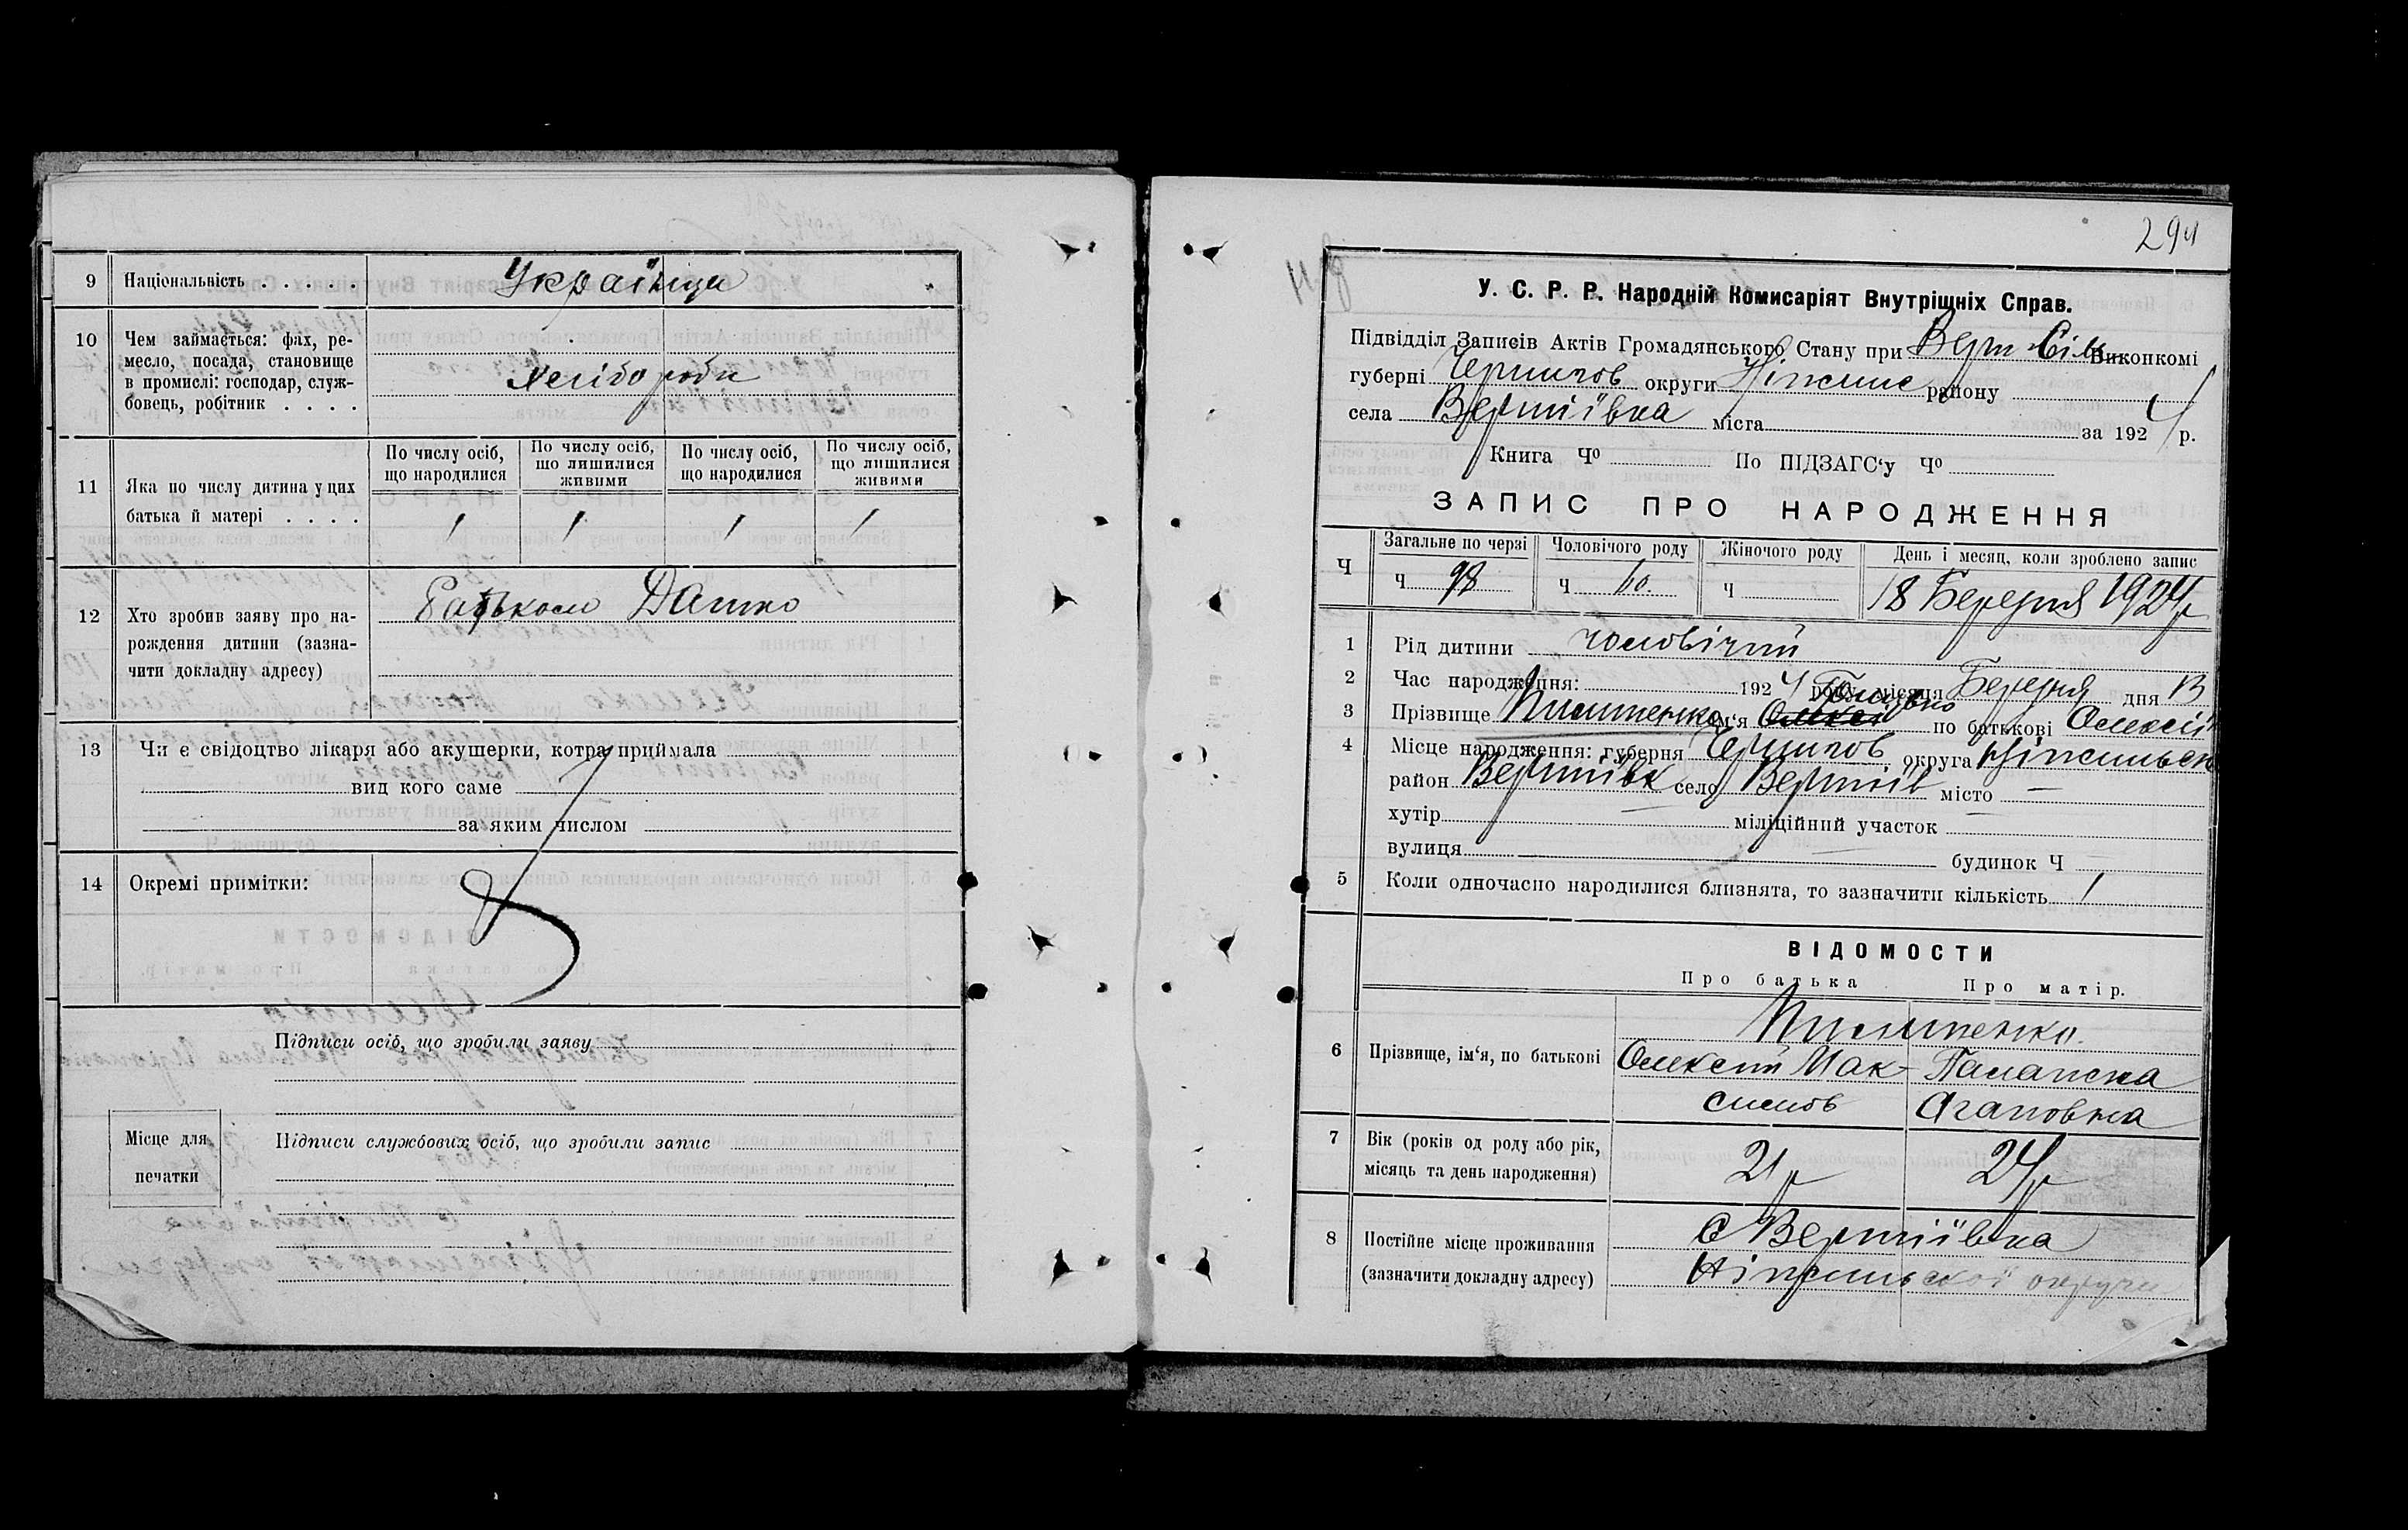 9 Національність . . . . . Українци
10 Чем займається: фах, ре-
месло, посада, становище
в промислі: господар, служ-
бовець, робітник . . . .
Хлібороби
11 Яка по числу дитина у цих
батька й матері . . . .
По числу осіб, що народилися
По числу осіб, що лишилися живими
По числу осіб, що народилися
По числу осіб, що лишилися живими
1 1 1 1
12 Хто зробив заяву про на-
рождення дитини (зазна-
чити докладну адресу)
Батьком
13 Чи є свідоцтво лікаря або акушерки, котра приймала
вид кого саме
за яким числом
14 Окремі примітки:
Підписи осіб, що зробили заяву
Місце для
печатки
Підписи службових осіб, що зробили запис
294
У. С. Р. Р. Народній Комисаріят Внутрішніх Справ.
Підвідділ Записів Актів Громадянського Стану при Верт Сіль Виконкомі
губерні Чернигов округи Ніжинс району
села Вертіївка міста за 1924 р.
Книга Чо По ПІДЗАГС‘у Чо
ЗАПИС ПРО НАРОДЖЕННЯ
Ч
Загальне по черзі Чоловічого роду Жіночого роду День і месяц, коли зроблено запис
Ч 98 Ч 60. Ч 18 Березня 1924 р
1 Рід дитини чоловічий
2 Час народження: 1924 року місяця Березня дня
3 Прізвище ім‘я Олексі по батькові Олексій
4 Місце народження: губерня Чернигов округа Ніжинськ
район Вертіївк село Вертіїв місто —
хутір міліційний участок
вулиця будинок Ч
5 Коли одночасно народилися близнята, то зазначити кількість 1
ВІДОМОСТИ
Про батька Про матір.
6 Прізвище, ім‘я, по батькові
Олексій Мак- Палажка
симов Агаповна
7 Вік (років од роду або рік,
місяць та день народження)
21 р 24 р
8 Постійне місце проживання
(зазначити докладну адресу)
с Вертіївка
Ніжинської округи